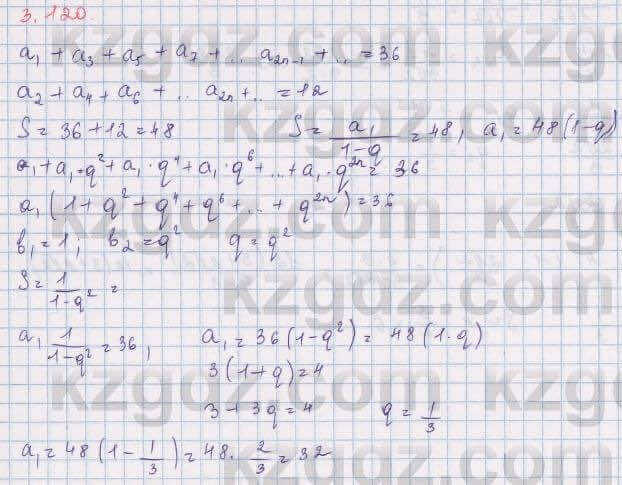 3.120
a₁ + a₃ + a₅ + a₇ + .. a₂ₙ₋₁ + .. = 36
a₂ + a₄ + a₆ + .. a₂ₙ + .. = 12
S = 36 + 12 = 48 S = a₁/(1-q) = 48, a₁ = 48(1-q)
a₁ + a₁·q² + a₁·q⁴ + a₁·q⁶ + .. + a₁·q²ⁿ = 36
a₁(1 + q² + q⁴ + q⁶ + .. + q²ⁿ) = 36
b₁ = 1; b₂ = q² q = q²
S = 1/(1-q²) =
a₁ 1/(1-q²) = 36, a₁ = 36(1-q²) = 48(1-q)
3(1+q) = 4
3 + 3q = 4 q = 1/3
a₁ = 48(1 - 1/3) = 48 · 2/3 = 32
kzgdz.com
kzgdz.com
kzgdz.com
kzgdz.com